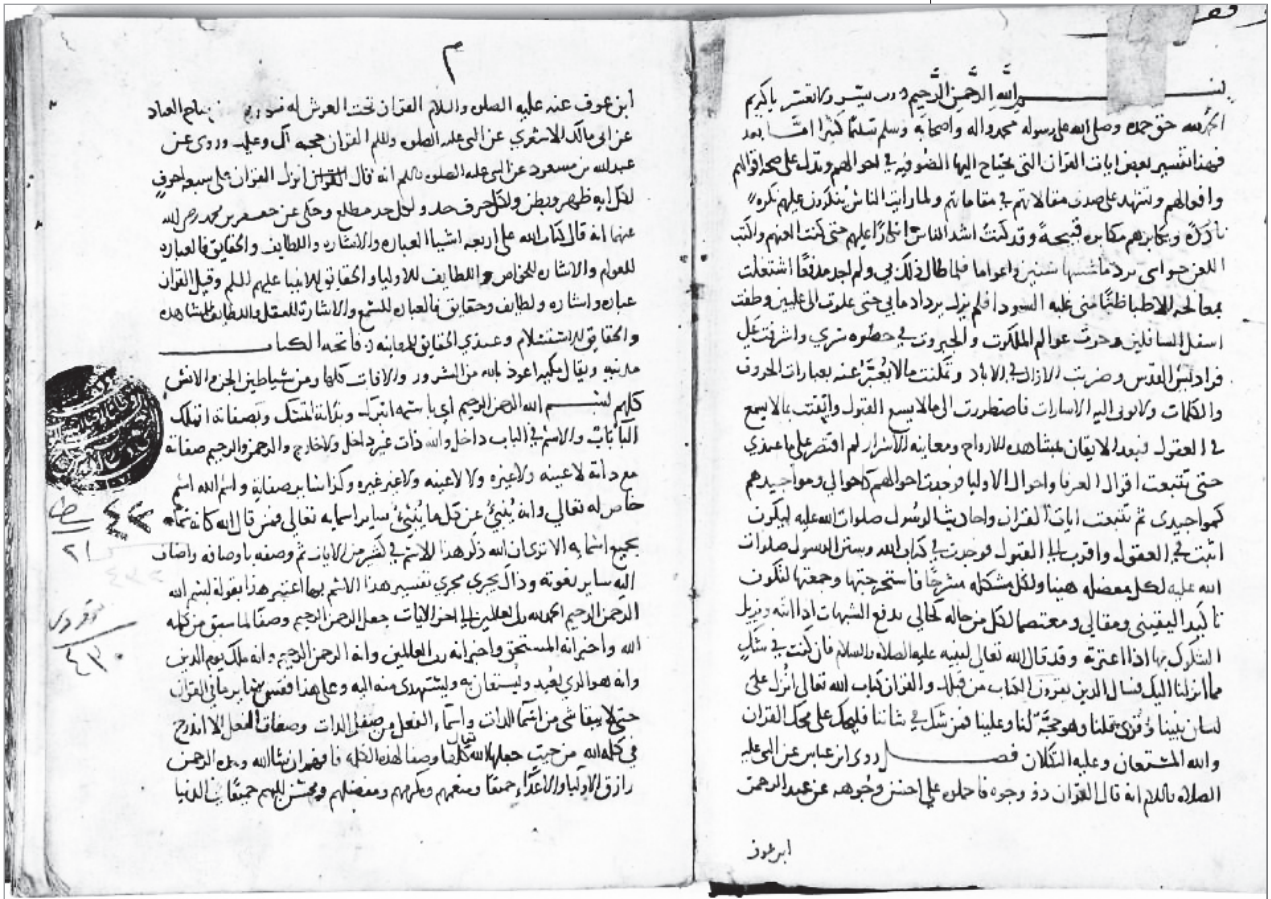 بسم الله الرحمن الرحيم رب يسر ولا تعسر يا كريم
الحمد لله حق حمده وصلى الله على رسوله محمد واله واصحابه وسلم تسليمًا كثيرًا امّا بعد
فهذا تفسير بعض ايات القران التى يحتاج اليها الصّوفيه فى احوالهم وتدل على صحه اقوالهم
وافعالهم وتشهد على صدق مقالاتهم فى مقاماتهم ولما رايت الناس يُنكرون عليهم نكره
قبيحةً وقد كنتُ اشد الناس انكارًا عليهم حتى كنت العنهم واكتب
اللعن سنين واعوامًا فلما طال ذلك بى ولم اجد مدفعًا اشتغلت
بمعالجه الاطبا ظنًّا منى غلبه السودا فلم يزل يزداد ما بى حتى علوت الى عليين وطفت
اسفل السافلين وحرت عوالم الملكوت والجبروت فى خطوه واشرفت على
فراديس القدس وضربت الازال فى الاباد وتمكنت ما لا يُعبّر عنه بعبارات الحروف
والكلمات ولا تومى اليه الاشارات فاضطررت الى ما لا يسع القبول وايقنت ما لا يسع
فى العقول فبعد الايقان بمشاهده الارواح ومعاينه الاسرار لم اقتصر على ما عندى
حتى تتبعت اقوال العرفا واحوال الاوليا فوجدت احوالهم كاحوالى ومواجيدهم
كمواجيدى ثم تتبعت ايات القران واحاديث الرسول صلوات الله عليه ليكون
اثبت فى العقول واقرب الى القبول فوجدت فى كتاب الله وسنن الرسول صلوات
الله عليه لكل معضله هينا ولكل مشكله مشرحًا فاستخرجتها وجمعتها لتكون
تاكيد اليقينى ومقالى ومعتصما لكل من حاله كحالى يدفع الشبهات اذا اتته ويزيل
الشكوك بها اذا اعترته وقد قال الله تعالى لنبيه عليه الصلاه والسلام فان كنت فى شكٍ
مما انزلنا اليك فسال الذين يقرون الكتاب من قبلك والقران كتاب الله تعالى انزل على
لسان نبينا وهو حجّة لنا وعلينا فمن شك فى شاننا فليحك على محك القران
والله المستعان وعليه التكلان فصل روى ابن عباس عن النبى عليه
الصلاه والسلام انه قال القران ذو وجوه فاحملوه على احسن وجوهه عن عبد الرحمن
ابن عوف
م
ابن عوف عنه عليه الصلوه والسلام القران تحت العرش له العباد
عن ابى مالك الاشعرى عن النبى عليه الصلوه والسلام القران حجه لك وعليك وروى عن
عبد الله بن مسعود عن النبى عليه الصلوه والسلام انه قال القران انزل القران على سبعه احرفٍ
لكل ايه ظهر وبطن ولكل حرف حد ولكل حد مطلع وحكى عن جعفر بن محمد رضى الله
عنهما انه قال كتاب الله على اربعه اشيا العباره والاشاره واللطايف والحقايق فالعباره
للعوام والاشاره للخواص واللطايف للاوليا والحقايق للانبيا عليهم السلم وقيل القران
عباره واشاره ولطايف وحقايق فالعباره للسّمع والاشارة للعقل واللطايف للمشاهده
والحقايق للاستسلام وعندى الحقايق للمعاينه فاتحه الكتاب
مدنيه ويقال مكيه اعوذ بالله من الشرور والافات كلها ومن شياطين الجن والانس
كلهم بسم الله الرحمن الرحيم اى
والاسم فى الباب داخل والله ذات غير داخل ولا خارج والرحمن والرحيم صفاته
مع ذاته لا عينه ولا غيره ولا لا عينه ولا غير غيره وكذا سايرصفاته واسم الله اسم
خاص له تعالى وانه يُنبئُ عن كل ما يُنبئ ساير اسمايه تعالى فمن قال الله كانه سماه
بجميع اسمايه الا ترى ان الله ذكر هذا الاسم فى كثير من الايات ثم وصفه باوصافه واضاف
اليه ساير نعوته وذاك يجرى مجرى تفسير هذا الاسم بها اعتبر هذا بقوله بسم الله
الرحمن الرحيم الحمد لله رب العلمين الى اخر الايات جعل الرحمن الرحيم وصفًا لما سبق من كلمه
الله واخبر انه المستحق واخبر انه رب العلمين وانه الرحمن الرحيم وانه ملك يوم الدين
وانه هو الذى يُعبد ويستعان به ويستهدى منه اليه وعلى هذا فقس ساير ما فى القران
حتى لا يبقا شى من اسما الذات واسماء الفعل وصفات الذات وصفات الفعل الا اندرج
فى كلمه الله من حيث جعلها الله تعالى كلها وصفا لهذه الكلمه فافهم ان شا الله وحده الرحمن
رازق الاوليا والاعداء جميعًا ومنعمهم ومكرمهم ومفضلهم ومحسن اليهم جميعًا فى الدنيا
٤٣٠